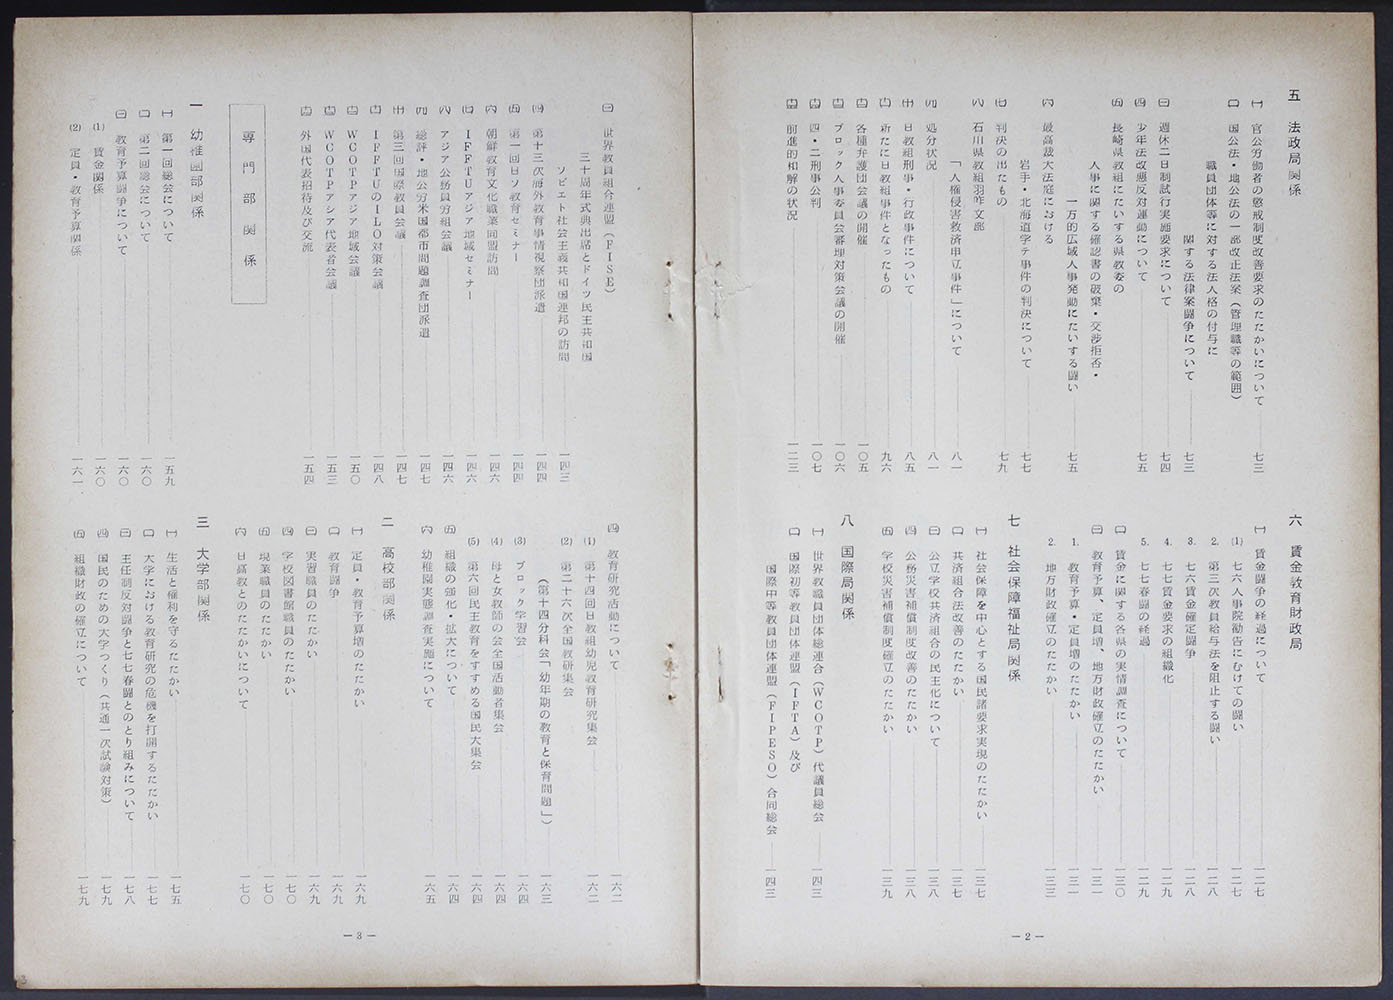 五　法政局関係
㈠　官公労働者の懲戒制度改善要求のたたかいについて　七三
㈡　国公法・地公法の一部改正法案（管理職等の範囲）
職員団体等に対する法人格の付与に
関する法律案闘争について　七三
㈢　週休二日制試行実施要求について　七四
㈣　少年法改悪反対運動について　七五
㈤　長崎県教組にたいする県教委の
人事に関する確認書の破棄・交渉拒否・
一方的広域人事発動にたいする闘い　七五
㈥　最高裁大法廷における
岩手・北海道学テ事件の判決について　七七
㈦　判決の出たもの　七九
㈧　石川県教組羽咋支部
「人権侵害救済申立事件」について　八一
㈨　処分状況　八一
㈩　日教組刑事・行政事件について　八五
新たに日教組事件となったもの　九六
各種弁護団会議の開催　一〇五
ブロック人事委員会審理対策会議の開催　一〇六
四・二刑事公判　一〇七
前進的和解の状況　一二三
六　賃金教育財政局
㈠　賃金闘争の経過について　一二七
(1)　七六人事院勧告にむけての闘い　一二七
2.　第三次教員給与法を阻止する闘い　一二八
3.　七六賃金確定闘争　一二八
4.　七七賃金要求の組織化　一二九
5.　七七春闘の経過　一二九
㈡　賃金に関する各県の実情調査について　一三〇
㈢　教育予算、定員増、地方財政確立のたたかい　一三一
1.　教育予算・定員増のたたかい　一三一
2.　地方財政確立のたたかい　一三三
七　社会保障福祉局関係
㈠　社会保障を中心とする国民諸要求実現のたたかい　一三七
㈡　共済組合法改善のたたかい　一三七
㈢　公立学校共済組合の民主化について　一三八
㈣　公務災害補償制度改善のたたかい　一三八
㈤　学校災害補償制度確立のたたかい　一三九
八　国際局関係
㈠　世界教職員団体総連合（ＷＣＯＴＰ）代議員総会　一四三
㈡　国際初等教員団体連盟（ＩＦＴＡ）及び
国際中等教員団体連盟（ＦＩＰＥＳＯ）合同総会　一四三
— 2 —
㈢　世界教員組合連盟（ＦＩＳＥ）
三十周年式典出席とドイツ民主共和国
ソビエト社会主義共和国連邦の訪問　一四三
㈣　第十三次海外教育事情視察団派遣　一四四
㈤　第一回日ソ教育セミナー　一四四
㈥　朝鮮教育文化職業同盟訪問　一四六
㈦　ＩＦＦＴＵアジア地域セミナー　一四六
㈧　アジア公務員労組会議　一四六
㈨　総評・地公労米国都市問題調査団派遣　一四七
㈩　第三回国際教員会議　一四七
ＩＦＦＴＵのＩＬＯ対策会議　一四八
ＷＣＯＴＰアジア地域会議　一五〇
ＷＣＯＴＰアジア代表者会議　一五三
外国代表招待及び交流　一五四
専門部関係
一　幼稚園部関係
㈠　第一回総会について　一五九
㈡　第二回総会について　一六〇
㈢　教育予算闘争について　一六〇
(1)　賃金関係　一六〇
(2)　定員・教育予算関係　一六一
㈣　教育研究活動について　一六二
(1)　第十四回日教組幼児教育研究集会　一六二
(2)　第二十六次全国教研集会
（第十四分科会「幼年期の教育と保育問題」）　一六三
(3)　ブロック学習会　一六四
(4)　母と女教師の会全国活動者集会　一六四
(5)　第六回民主教育をすすめる国民大集会　一六四
㈤　組織の強化・拡大について　一六四
㈥　幼稚園実態調査実施について　一六五
二　高校部関係
㈠　定員・教育予算増のたたかい　一六九
㈡　教育闘争　一六九
㈢　実習職員のたたかい　一六九
㈣　学校図書館職員のたたかい　一七〇
㈤　現業職員のたたかい　一七〇
㈥　日高教とのたたかいについて　一七〇
三　大学部関係
㈠　生活と権利を守るたたかい　一七五
㈡　大学における教育研究の危機を打開するたたかい　一七七
㈢　主任制反対闘争と七七春闘とのとり組みについて　一七八
㈣　国民のための大学つくり（共通一次試験対策）　一七九
㈤　組織財政の確立について　一七九
— 3 —